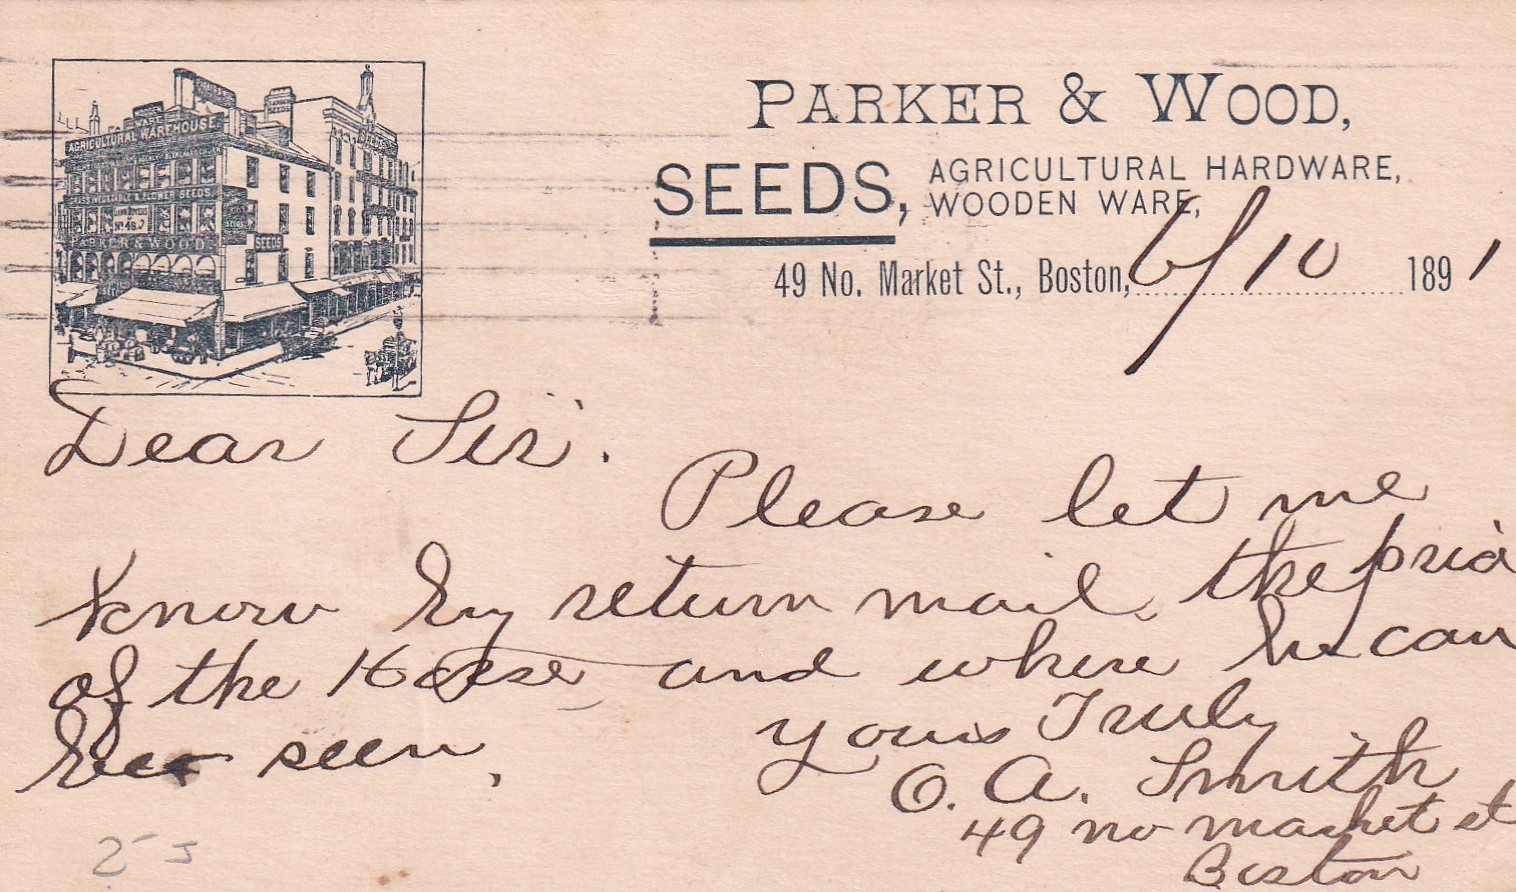 PARKER & WOOD,
SEEDS, AGRICULTURAL HARDWARE,
WOODEN WARE,
49 No. Market St., Boston, 6/10 1891
AGRICULTURAL WAREHOUSE
PARKER & WOOD
SEEDS
Dear Sir.
Please let me
know by return mail, the price
of the Horse and where he can
bee seen,
Yours Truly
O. A. Smith
49 no market st
Boston
25